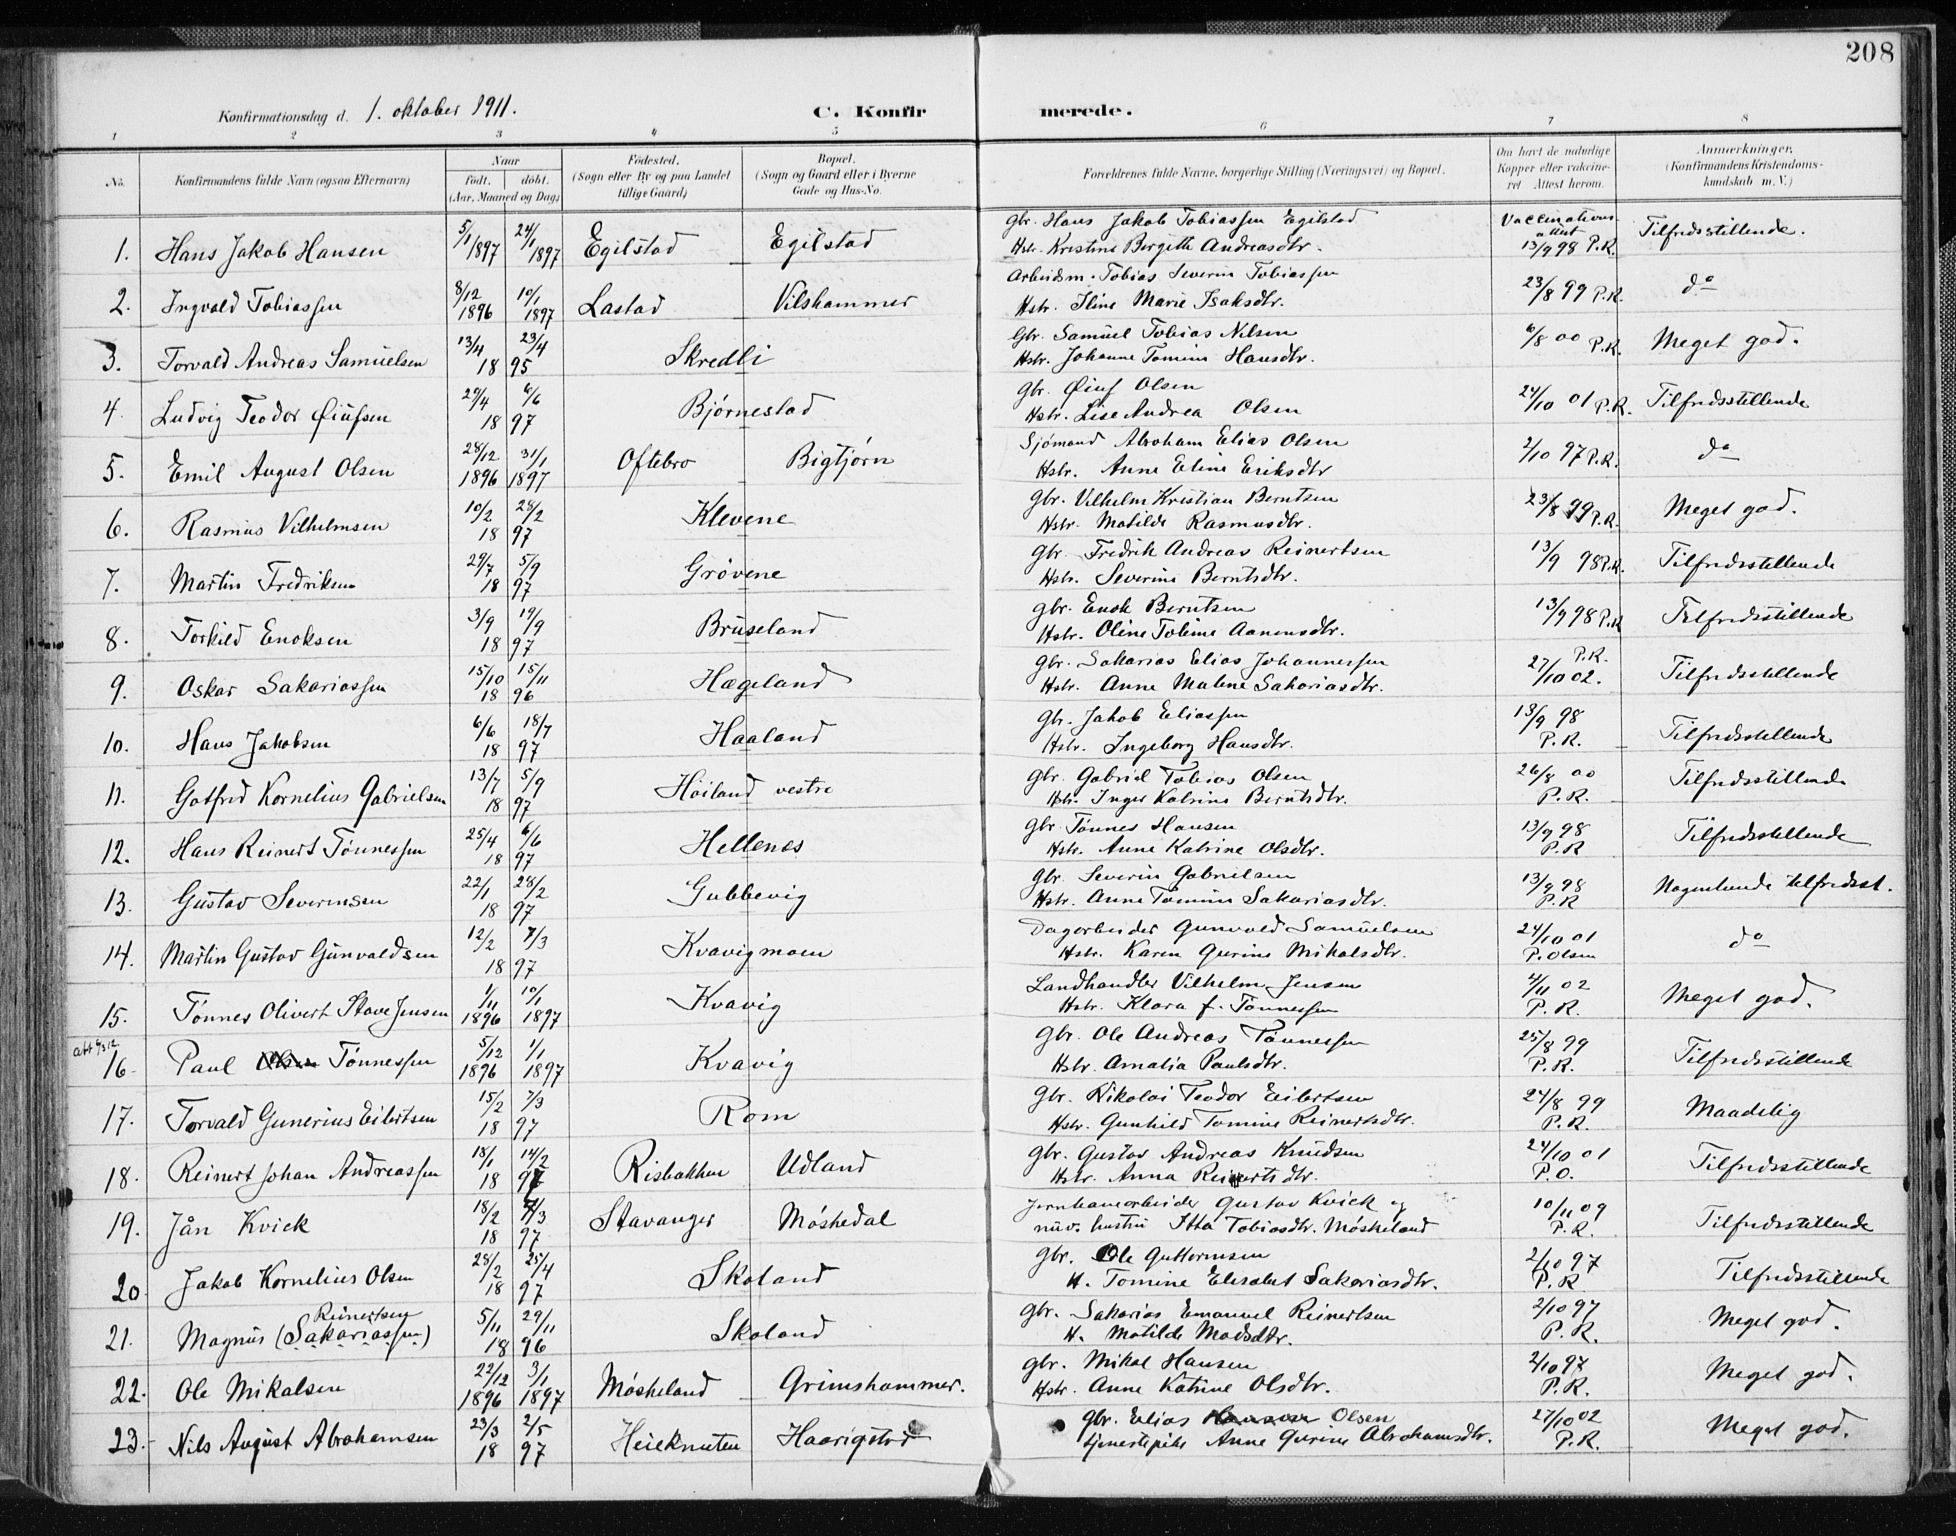 208
Konfirmationsdag d. 1. oktober 1911. C. Konfirmerede.
1 2 3 4 5 6 7 8
No. Konfirmandens fulde Navn (ogsaa Efternavn) Naar født. døbt. (Aar, Maaned og Dag) Fødested. (Sogn eller By og paa Landet tillige Gaard) Bopæl. (Sogn og Gaard eller i Byerne Gade og Hus-No. Forældrenes fulde Navne, borgerlige Stilling (Næringsvei) og Bopæl. Om havt de naturlige Kopper eller vakcineret. Attest herom. Anmærkninger. (Konfirmandens Kristendomskundskab m. V.)
1. Hans Jakob Hansen 5/1 1897 24/1 1897 Egilstad Egilstad Gbr. Hans Jakob Tobiassen Egilstad Hstr. Kristine Bergitte Andreasdtr. Vaccinations attest 13/9 98 P.R. Tilfredsstillende.
2. Ingvald Tobiassen 8/12 1896 10/1 1897 Lastad Vilshammer Arbeidsm. Tobias Severin Tobiassen Hstr. Iline Marie Isaksdtr. 23/8 99 P.R. do
3. Torvald Andreas Samuelsen 13/4 23/4 1895 Skredli Gbr. Samuel Tobias Nilsen Hstr. Johanne Tomine Hansdtr. 6/8 00 P.R. Meget god.
4. Ludvig Teodor Øiufsen 29/4 6/6 1897 Bjørnestad Gbr. Øiuf Olsen Hstr. Lise Andrea Olsen 24/10 01 P.R. Tilfredsstillende
5. Emil August Olsen 28/12 1896 31/1 1897 Oftebro Bigtjørn Sjømand Abraham Elias Olsen Hstr. Anne Eline Eriksdtr 2/10 97 P.R. do
6. Rasmus Vilhelmsen 10/2 28/2 1897 Klevene Gbr. Vilhelm Kristian Berntsen Hstr. Matilde Rasmusdtr. 23/8 99 P.R. Meget god.
7. Martin Fredriksen 29/7 5/9 1897 Grøvene Gbr. Fredrik Andreas Reinertsen Hstr. Severine Berntsdtr. 13/9 98 P.R. Tilfredsstillende
8. Torkild Enoksen 3/9 19/9 1897 Bruseland Gbr. Enok Berntsen Hstr. Oline Toline Aanensdtr. 13/9 98 P.R Tilfredsstillende
9. Oskar Sakariassen 15/10 15/11 1896 Hægeland Gbr. Sakarias Elias Johannessen Hstr. Anne Malene Sakariasdtr. 27/10 02. P.R. Tilfredsstillende
10. Hans Jakobsen 6/6 18/7 1897 Haaland Gbr. Jakob Eliassen Hstr. Ingeborg Hansdtr. 13/9 98 P.R. Tilfredsstillende
11. Gotfred Kornelius Gabrielsen 13/7 5/9 1897 Høiland vestre Gbr. Gabriel Tobias Olsen Hstr. Inger Katrine Berntsdtr. 26/8 00 P.R. Tilfredsstillende
12. Hans Reinert Tønnessen 25/4 6/6 1897 Hellenes Gbr. Tønnes Hansen Hstr. Anne Katrine Olsdtr. 13/9 98 P.R Tilfredsstillende
13. Gustav Severinsen 22/1 28/2 1897 Gubbevig Gbr. Severin Gabrielsen Hstr. Anne Tomine Sakariasdtr. 13/9 98 P.R Nogenlunde tilfredsst.
14. Martin Gustav Gunvaldsen 12/2 7/3 1897 Kvavigmoen Dagarbeider Gunvald Samuelsen Hstr. Karen Gurine Mikalsdtr. 24/10 01 P. Olsen do
15. Tønnes Olivert Stave Jensen 1/11 1896 10/1 1897 Kvavig Landhandler Vilhelm Jensen Hstr. Klara f. Tønnessen 4/11 02 P.R. Meget god.
16. Paul Tønnessen 5/12 1896 1/1 1897 Kvavig Gbr. Ole Andreas Tønnessen Hstr. Amalia Paulsdtr. 25/8 99 P.R. Tilfredsstillende
17. Torvald Gunerius Eilertsen 15/2 7/3 1897 Rom Gbr. Nikolai Teodor Eilertsen Hstr. Gunhild Tomine Reinertsdtr. 24/8 99 P.R. Maadelig
18. Reinert Johan Andreassen 18/1 14/2 1897 Risbakken Udland Gbr. Gustav Andreas Knudsen Hstr. Anna Reinertsdtr. 24/10 01 P.O. Tilfredsstillende
19. Jån Kvick 18/2 /3 1897 Stavanger Møskedal Jernbanearbeider Gustav Kvick og nuv. hustru Itta Tobiasdtr. Møskeland 10/11 09 P.R. Tilfredsstillende
20 Jakob Kornelius Olsen 28/2 25/4 1897 Skoland Gbr. Ole Guttormsen H. Tomine Elisabet Sakariasdtr. 2/10 97 P.R Tilfredsstillende
21. Magnus (Sakariassen) Reinertsen 5/11 29/11 1896 Skoland Gbr. Sakarias Emanuel Reinertsen H. Matilde Madsdtr. 2/10 97 P.R. Meget god.
22. Ole Mikalsen 22/12 1896 3/1 1897 Møskeland Grimshammer. Gbr. Mikal Hansen Hstr. Anne Katrine Olsdtr. 2/10 97 P.R. Meget god.
23. Nils August Abrahamsen 23/3 2/5 1897 Heieknuten Haarigstad Gbr. Elias Olsen tjenestepike Anne Gurine Abrahamsdtr. 27/10 02 P.R. Meget god.